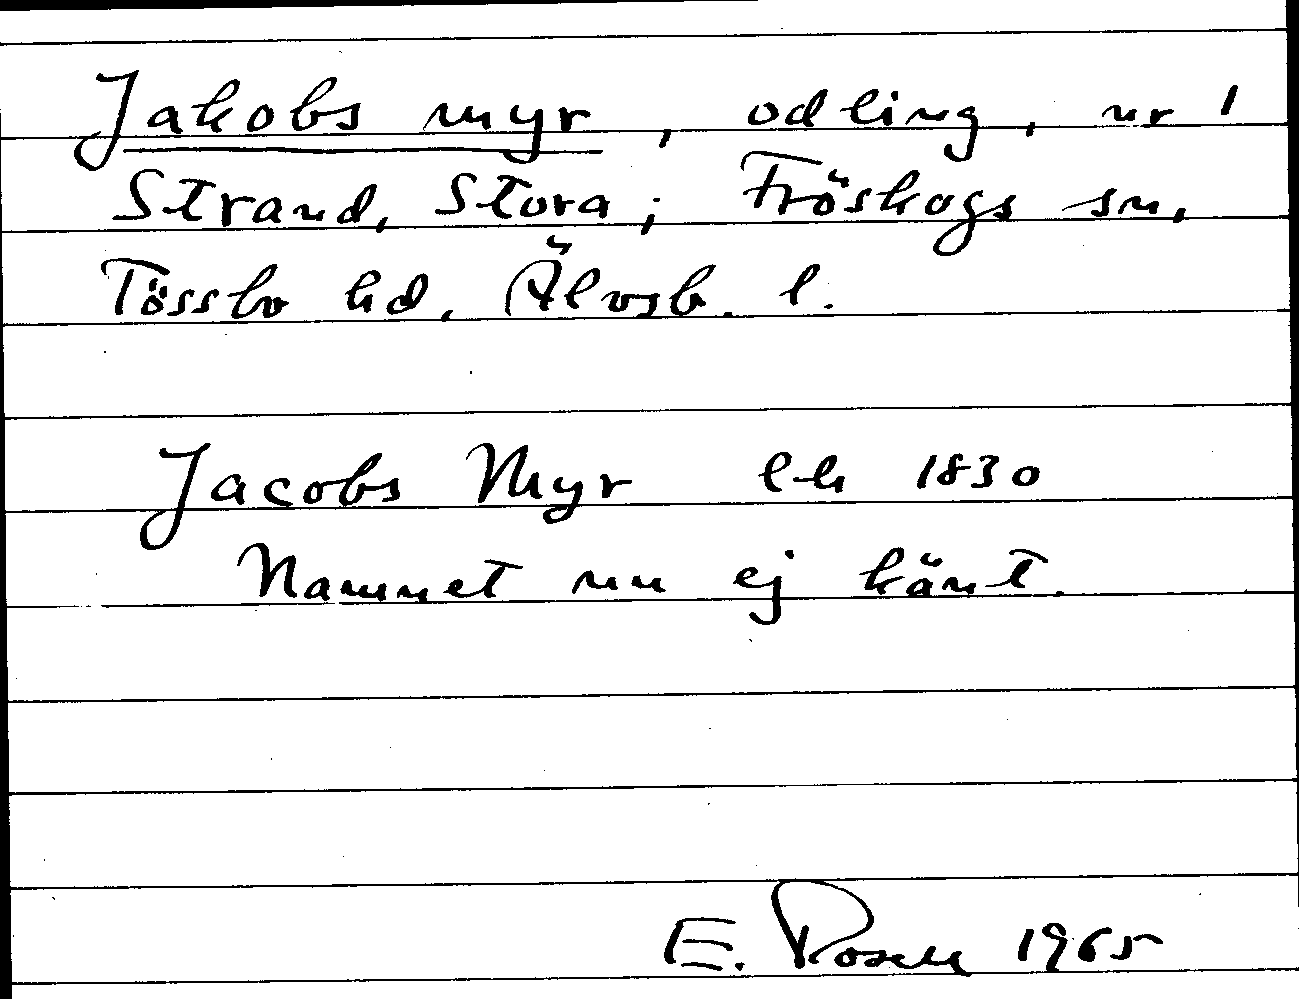 Jakobs myr, odling, nr 1
Strand, Stora; Fröskogs sn,
Tössbo hd. Älvsb. l.
Jacobs Myr lh 1830
Namnet nu ej känt.
E. Rosell 1965